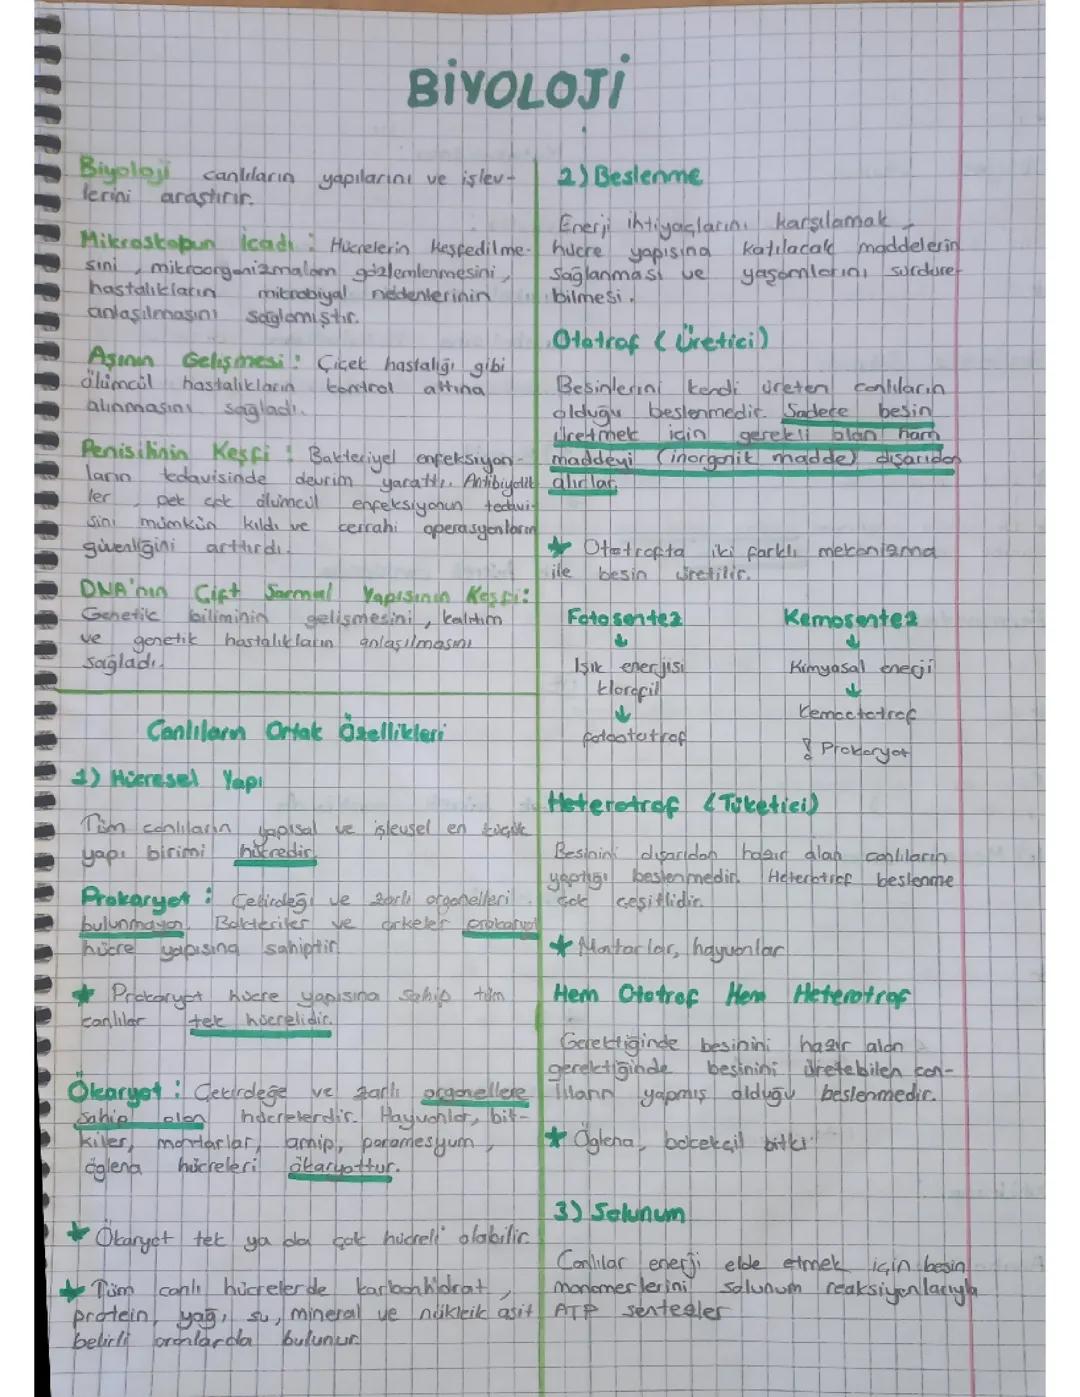 BİYOLOJİ
Biyoloji canlıların yapılarını ve işlev-
lerini araştırır.
Mikroskobun İcadı : Hücrelerin keşfedilme-
sini, mikroorganizmaların gözlemlenmesini,
hastalıkların mikrobiyal nedenlerinin
anlaşılmasını sağlamıştır.
Aşının Gelişmesi : Çiçek hastalığı gibi
ölümcül hastalıkların kontrol altına
alınmasını sağladı.
Penisilinin Keşfi : Bakteriyel enfeksiyon-
ların tedavisinde devrim yarattı. Antibiyotik
ler, pek çok ölümcül enfeksiyonun tedavi
sini mümkün kıldı ve cerrahi operasyonların
güvenliğini arttırdı.
DNA'nın Çift Sarmal Yapısının Keşfi:
Genetik biliminin gelişmesini, kalıtım
ve genetik hastalıkların anlaşılmasını
sağladı.
Canlıların Ortak Özellikleri
1) Hücresel Yapı
Tüm canlıların yapısal ve işlevsel en küçük
yapı birimi hücredir.
Prokaryot : Çekirdeği ve zarlı organelleri
bulunmayan. Bakteriler ve arkeler prokaryot
hücre yapısına sahiptir.
★ Prokaryot hücre yapısına sahip tüm
canlılar tek hücrelidir.
Ökaryot : Çekirdeğe ve zarlı organellere
sahip olan hücrelerdir. Hayvanlar, bit-
kiler, mantarlar, amip, paramesyum,
öglena hücreleri ökaryottur.
★ Ökaryot tek ya da çok hücreli olabilir.
★ Tüm canlı hücrelerde karbonhidrat,
protein, yağ, su, mineral ve nükleik asit
belirli oranlarda bulunur.
2) Beslenme
Enerji ihtiyaçlarını karşılamak,
hücre yapısına katılacak maddelerin
sağlanması ve yaşamlarını sürdüre-
bilmesi.
Ototrof (Üretici)
Besinlerini kendi üreten canlıların
olduğu beslenmedir. Sadece besin
üretmek için gerekli olan ham
maddeyi (inorganik madde) dışarıdan
alırlar.
★ Ototrofta iki farklı mekanizma
ile besin üretilir.
Fotosentez Kemosentez
↓ ↓
Işık enerjisi Kimyasal enerji
klorofil ↓
↓ Kemoototrof
fotoototrof ! Prokaryot
Heterotrof (Tüketici)
Besinini dışarıdan hazır alan canlıların
yaptığı beslenmedir. Heterotrof beslenme
çok çeşitlidir.
★ Mantarlar, hayvanlar
Hem Ototrof Hem Heterotrof
Gerektiğinde besinini hazır alan
gerektiğinde besinini üretebilen can-
lıların yapmış olduğu beslenmedir.
★ Öglena, böcekçil bitki
3) Solunum
Canlılar enerji elde etmek için besin
monomerlerini solunum reaksiyonlarıyla
ATP sentezler